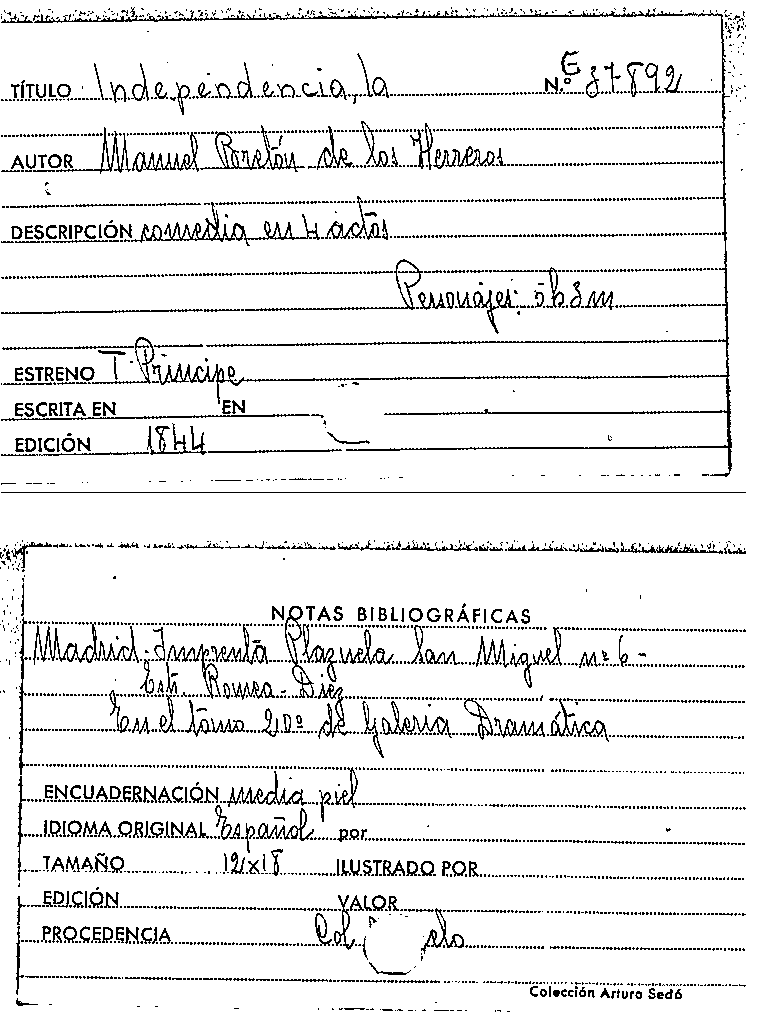 TÍTULO Independencia, la N.º E 37892
AUTOR Manuel Bretón de los Herreros
DESCRIPCIÓN comedia en 4 actos
Personajes: 5h 3m
ESTRENO T. Principe
ESCRITA EN EN
EDICIÓN 1844
NOTAS BIBLIOGRÁFICAS
Madrid-Imprenta Plazuela San Miguel nº 6-
Estr. Romea-Diez
En el tomo 20º de Galeria Dramática
ENCUADERNACIÓN media piel
IDIOMA ORIGINAL Español por
TAMAÑO 12x18 ILUSTRADO POR
EDICIÓN VALOR
PROCEDENCIA Col
Colección Arturo Sedó